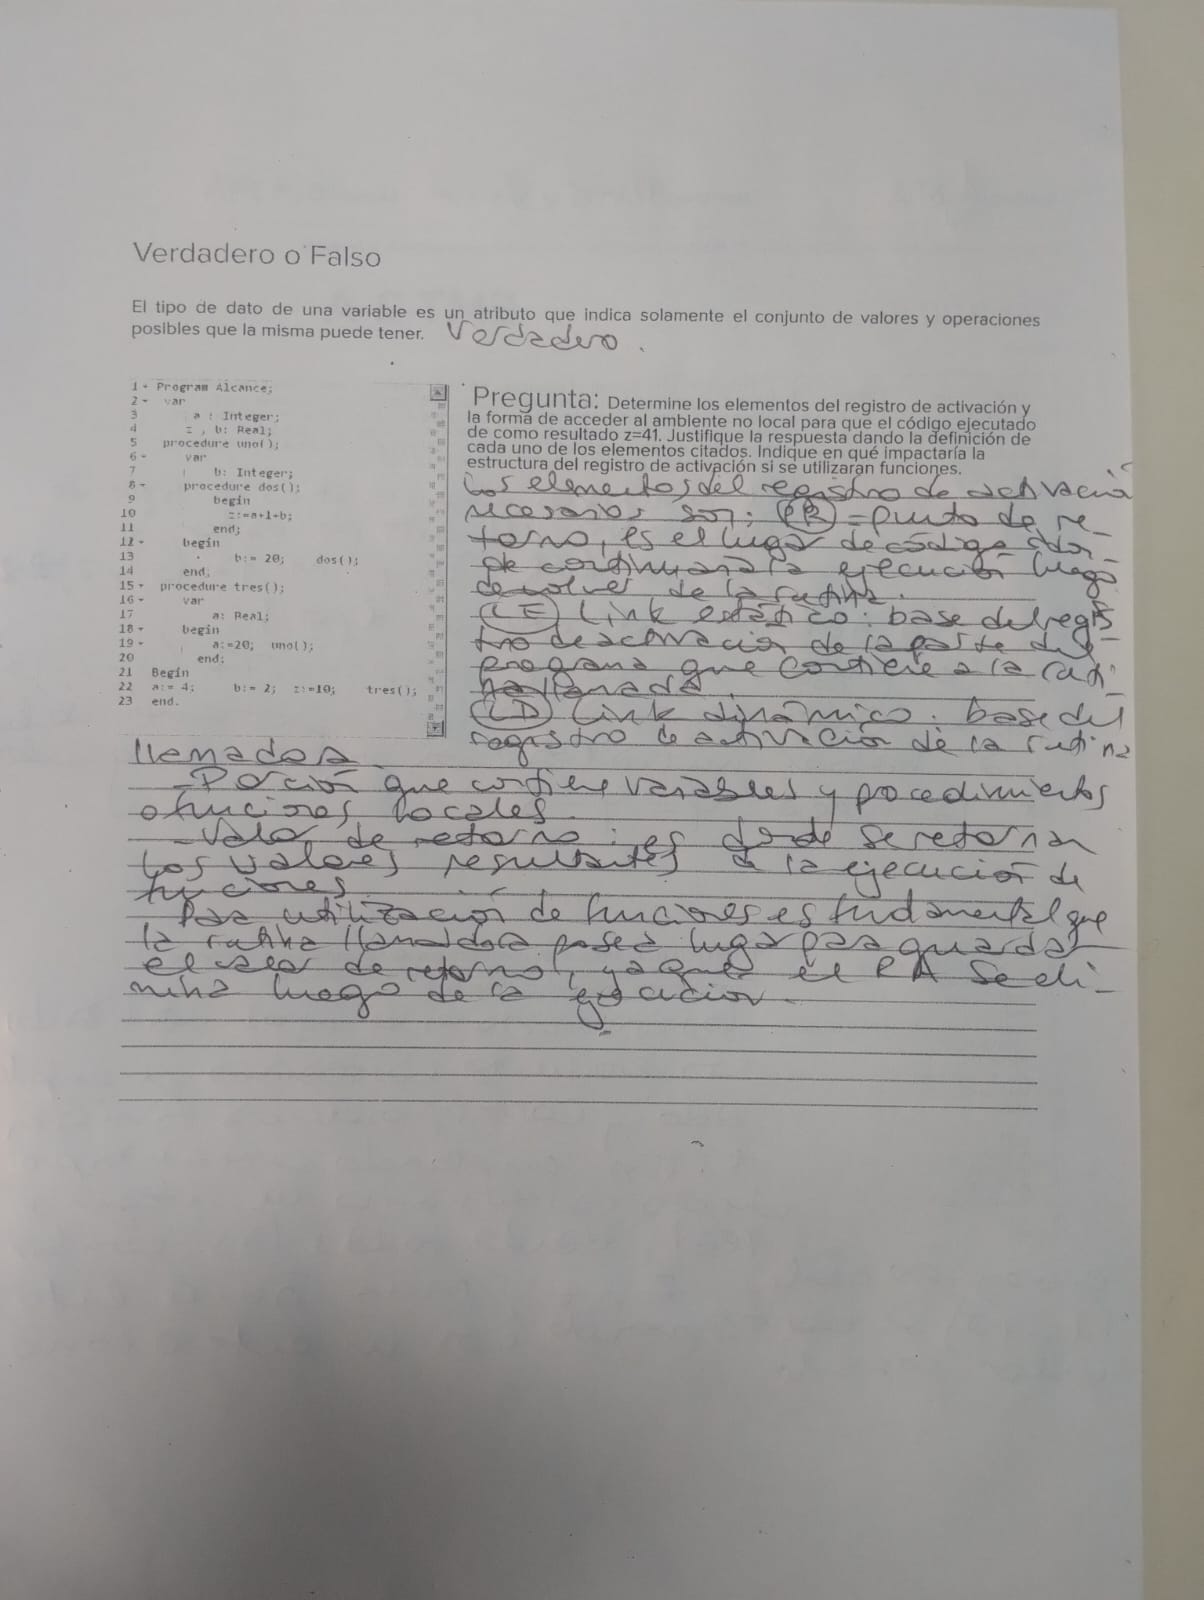 Verdadero o Falso
El tipo de dato de una variable es un atributo que indica solamente el conjunto de valores y operaciones
posibles que la misma puede tener. Verdadero.
1 Program Alcance;
2 var
3 a : Integer;
4 z , b: Real;
5 procedure uno();
6 var
7 b: Integer;
8 procedure dos();
9 begin
10 z:=a+1+b;
11 end;
12 begin
13 b:= 20; dos();
14 end;
15 procedure tres();
16 var
17 a: Real;
18 begin
19 a:=20; uno();
20 end;
21 Begin
22 a:= 4; b:= 2; z:=10; tres();
23 end.
Pregunta: Determine los elementos del registro de activación y
la forma de acceder al ambiente no local para que el código ejecutado
de como resultado z=41. Justifique la respuesta dando la definición de
cada uno de los elementos citados. Indique en qué impactaría la
estructura del registro de activación si se utilizaran funciones.
Los elementos del registro de activación
necesarios son: (PR) = punto de re-
torno, es el lugar de código don-
de continuará la ejecución luego
de volver de la rutina.
(LE) Link estático: base del regis-
tro de activación de la parte del
programa que contiene a la ruti-
na llamada.
(LD) Link dinámico. base del
registro de activación de la rutina
llamadora
- Porción que contiene variables y procedimientos
o funciones locales.
- Valor de retorno: es donde se retornan
los valores resultantes de la ejecución de
funciones
Para utilización de funciones es fundamental que
la rutina llamadora posea lugar para guardar
el valor de retorno, ya que el RA se eli-
mina luego de la ejecución.